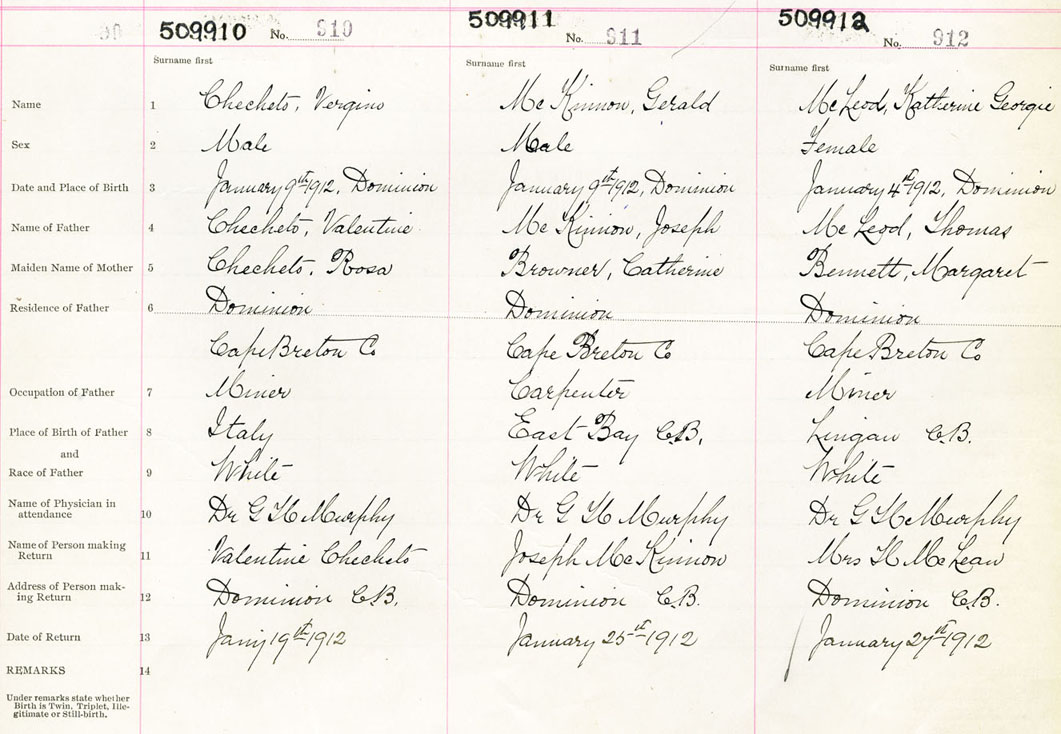 509910 No. 910 509911 No. 911 509912 No. 912
Surname first Surname first Surname first
Name 1 Checheto, Vergino Mc Kinnon, Gerald McLeod, Katherine Georgie
Sex 2 Male Male Female
Date and Place of Birth 3 January 9th 1912, Dominion January 9th 1912, Dominion January 4th 1912, Dominion
Name of Father 4 Checheto, Valentine Mc Kinnon, Joseph McLeod, Thomas
Maiden Name of Mother 5 Checheto, Rosa Browner, Catherine Bennett, Margaret
Residence of Father 6 Dominion Dominion Dominion
Cape Breton Co Cape Breton Co Cape Breton Co
Occupation of Father 7 Miner Carpenter Miner
Place of Birth of Father 8 Italy East Bay C.B. Lingan C.B.
and
Race of Father 9 White White White
Name of Physician in
attendance 10 Dr G H Murphy Dr G H Murphy Dr G H Murphy
Name of Person making
Return 11 Valentine Checheto Joseph McKinnon Mrs H McLean
Address of Person mak-
ing Return 12 Dominion C.B. Dominion C.B. Dominion C.B.
Date of Return 13 Jany 19th 1912 January 25th 1912 January 27th 1912
REMARKS 14
Under remarks state whether
Birth is Twin, Triplet, Ille-
gitimate or Still-birth.